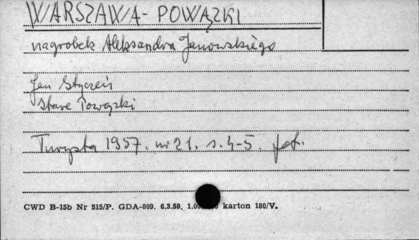 WARSZAWA - POWĄZKI
nagrobek Aleksandra Janowskiego
Jan Styczeń
Stare Powązki
Turysta 1957. nr 21. s. 4-5. fot.
CWD B-15b Nr 515/P. GDA-809. 6.3.59. karton 180/V.